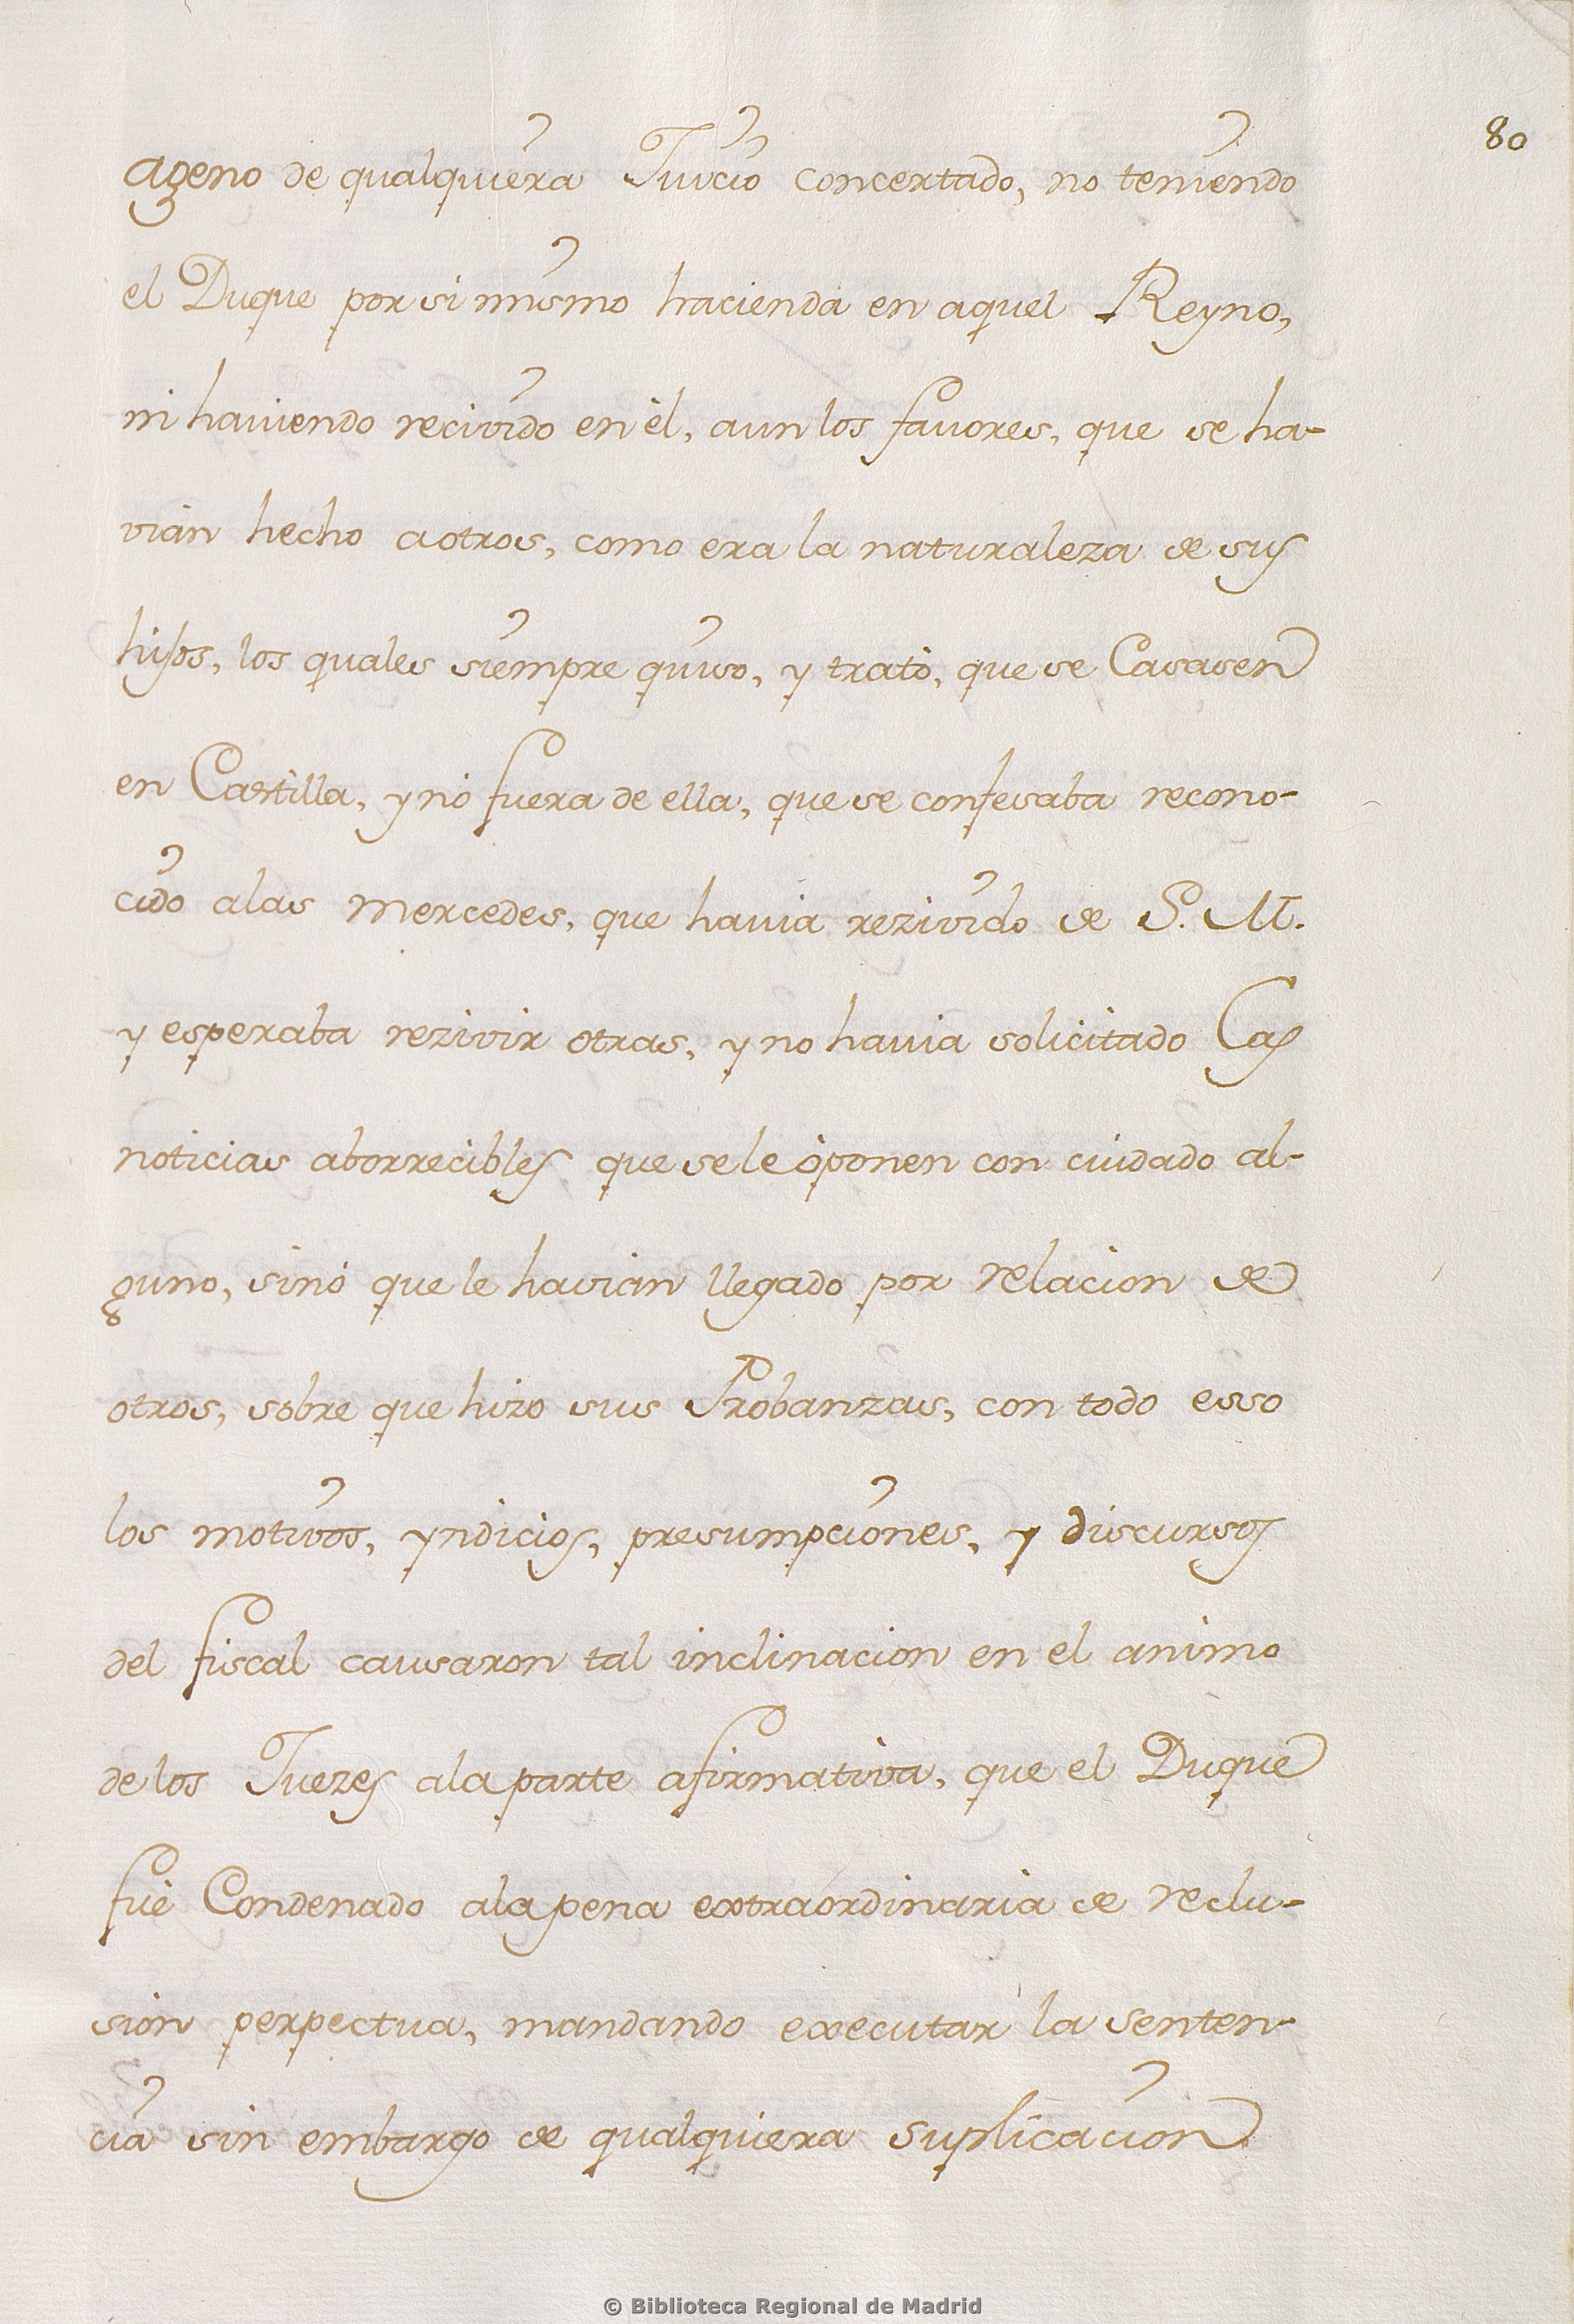 80
ageno de qualquiera Juicio concertado, no teniendo
el Duque por si mismo hacienda en aquel Reyno,
ni haviendo recivido en èl, aun los favores, que se ha-
vian hecho a otros, como era la naturaleza de sus
hijos, los quales siempre quiso, y tratò, que se Casasen
en Castilla, y nò fuera de ella, que se confesaba recono-
cido a las mercedes, que havia rezivido de S. M.
y esperaba rezivir otras, y no havia solicitado Las
noticias aborrecibles que se le òponen con cuidado al-
guno, sinò que le havian llegado por relacion de
otros, sobre que hizo sus Probanzas, con todo esso
los motivos, yndicios, presumpciones, y discursos
del fiscal causaron tal inclinacion en el animo
de los Juezes a la parte afirmativa, que el Duque
fuè Condenado a la pena extraordinaria de reclu-
sion perpectua, mandando executar la senten-
cia sin embargo de qualquiera suplicacion
© Biblioteca Regional de Madrid